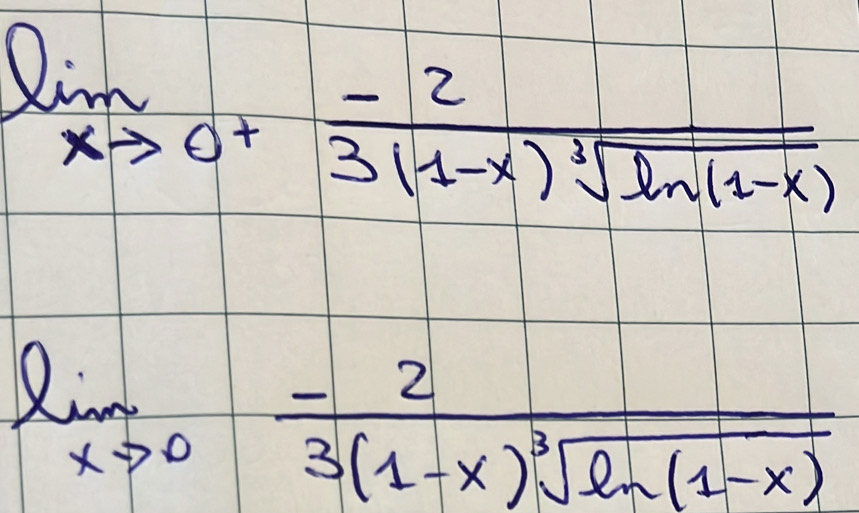 lim x→0⁺ -2 / 3(1-x) ∛ln(1-x)
lim x→0 -2 / 3(1-x) ∛ln(1-x)